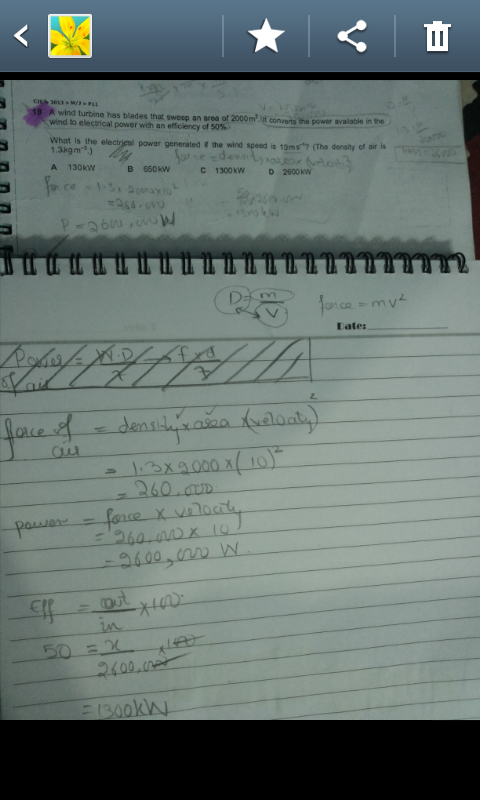 18 A wind turbine has blades that sweep an area of 2000m². It converts the power available in the
wind to electrical power with an efficiency of 50%.
What is the electrical power generated if the wind speed is 10ms⁻¹? (The density of air is
1.3kgm⁻³.)
force = density x area x (velocity)
A 130kW B 650kW C 1300kW D 2600kW
force = 1.3 x 2000 x 10²
= 260,000
P = 2600,000 W
D = m/V force = mv²
Date:
Power of air = W.D/t → f x d/t
force of air = density x area x (velocity)²
= 1.3 x 2000 x (10)²
= 260,000
power = force x velocity
= 260,000 x 10
= 2600,000 W
Eff = out/in x 100
50 = x/2600,000 x 100
= 1300kW